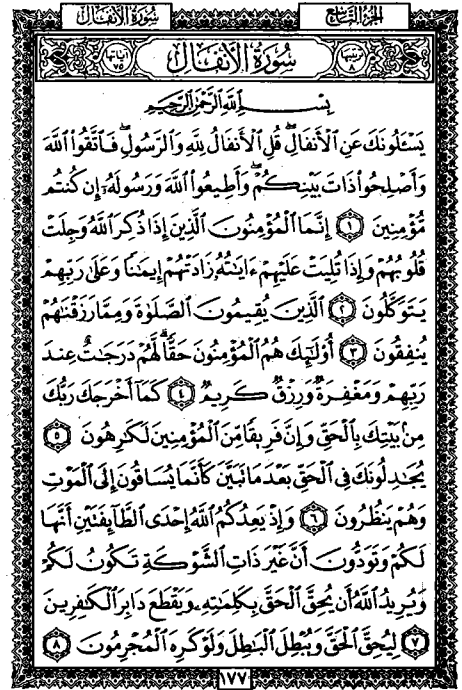 سُورَةُ الأَنفَالِ
الجُزءُ التَّاسِعُ
ترتيبها ٨
سُورَةُ الأَنفَالِ
آياتها ٧٥
بِسْمِ اللَّهِ الرَّحْمَٰنِ الرَّحِيمِ
يَسْـَٔلُونَكَ عَنِ ٱلْأَنفَالِۖ قُلِ ٱلْأَنفَالُ لِلَّهِ وَٱلرَّسُولِۖ فَٱتَّقُوا۟ ٱللَّهَ
وَأَصْلِحُوا۟ ذَاتَ بَيْنِكُمْۖ وَأَطِيعُوا۟ ٱللَّهَ وَرَسُولَهُۥٓ إِن كُنتُم
مُّؤْمِنِينَ ١ إِنَّمَا ٱلْمُؤْمِنُونَ ٱلَّذِينَ إِذَا ذُكِرَ ٱللَّهُ وَجِلَتْ
قُلُوبُهُمْ وَإِذَا تُلِيَتْ عَلَيْهِمْ ءَايَٰتُهُۥ زَادَتْهُمْ إِيمَٰنًا وَعَلَىٰ رَبِّهِمْ
يَتَوَكَّلُونَ ٢ ٱلَّذِينَ يُقِيمُونَ ٱلصَّلَوٰةَ وَمِمَّا رَزَقْنَٰهُمْ
يُنفِقُونَ ٣ أُو۟لَٰٓئِكَ هُمُ ٱلْمُؤْمِنُونَ حَقًّاۚ لَّهُمْ دَرَجَٰتٌ عِندَ
رَبِّهِمْ وَمَغْفِرَةٌ وَرِزْقٌ كَرِيمٌ ٤ كَمَآ أَخْرَجَكَ رَبُّكَ
مِنۢ بَيْتِكَ بِٱلْحَقِّ وَإِنَّ فَرِيقًا مِّنَ ٱلْمُؤْمِنِينَ لَكَٰرِهُونَ ٥
يُجَٰدِلُونَكَ فِى ٱلْحَقِّ بَعْدَ مَا تَبَيَّنَ كَأَنَّمَا يُسَاقُونَ إِلَى ٱلْمَوْتِ
وَهُمْ يَنظُرُونَ ٦ وَإِذْ يَعِدُكُمُ ٱللَّهُ إِحْدَى ٱلطَّآئِفَتَيْنِ أَنَّهَا
لَكُمْ وَتَوَدُّونَ أَنَّ غَيْرَ ذَاتِ ٱلشَّوْكَةِ تَكُونُ لَكُمْ
وَيُرِيدُ ٱللَّهُ أَن يُحِقَّ ٱلْحَقَّ بِكَلِمَٰتِهِۦ وَيَقْطَعَ دَابِرَ ٱلْكَٰفِرِينَ
٧ لِيُحِقَّ ٱلْحَقَّ وَيُبْطِلَ ٱلْبَٰطِلَ وَلَوْ كَرِهَ ٱلْمُجْرِمُونَ ٨
١٧٧